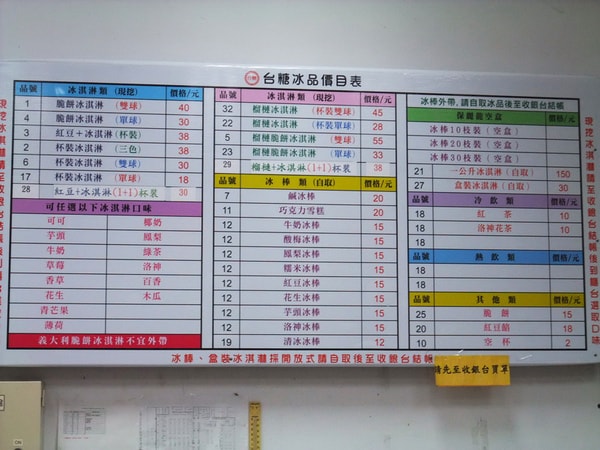 台糖冰品價目表
品號 冰淇淋類 (現挖) 價格/元
1 脆餅冰淇淋 (雙球) 40
4 脆餅冰淇淋 (單球) 30
3 紅豆+冰淇淋 (杯裝) 38
2 杯裝冰淇淋 (三色) 38
6 杯裝冰淇淋 (雙球) 30
17 杯裝冰淇淋 (單球) 18
28 紅豆+冰淇淋(1+1)杯裝 30
可任選以下冰淇淋口味
可可 椰奶
芋頭 鳳梨
牛奶 綠茶
草莓 洛神
香草 百香
花生 木瓜
青芒果
薄荷
義大利脆餅冰淇淋不宜外帶
品號 冰淇淋類 (現挖) 價格/元
32 榴槤冰淇淋 (杯裝雙球) 45
22 榴槤冰淇淋 (杯裝單球) 28
5 榴槤脆餅冰淇淋 (雙球) 55
23 榴槤脆餅冰淇淋 (單球) 33
29 榴槤+冰淇淋(1+1)杯裝 38
品號 冰棒類 (自取) 價格/元
7 鹹冰棒 20
11 巧克力雪糕 20
12 牛奶冰棒 15
12 酸梅冰棒 15
12 鳳梨冰棒 15
12 糯米冰棒 15
12 紅豆冰棒 15
12 花生冰棒 15
12 芋頭冰棒 15
12 洛神冰棒 15
19 清冰冰棒 12
冰棒外帶,請自取冰品後至收銀台結帳
保麗龍空盒
冰棒10枝裝 (空盒)
冰棒20枝裝 (空盒)
冰棒30枝裝 (空盒)
21 一公升冰淇淋 (自取) 150
27 盒裝冰淇淋 (自取) 30
品號 冷飲類 價格/元
18 紅茶 10
18 洛神花茶 10
品號 熱飲類 價格/元
18
18
品號 其他類 價格/元
25 脆餅 15
20 紅豆餡 18
10 空杯 2
冰棒、盒裝冰淇淋採開放式請自取後至收銀台結帳
請先至收銀台買單